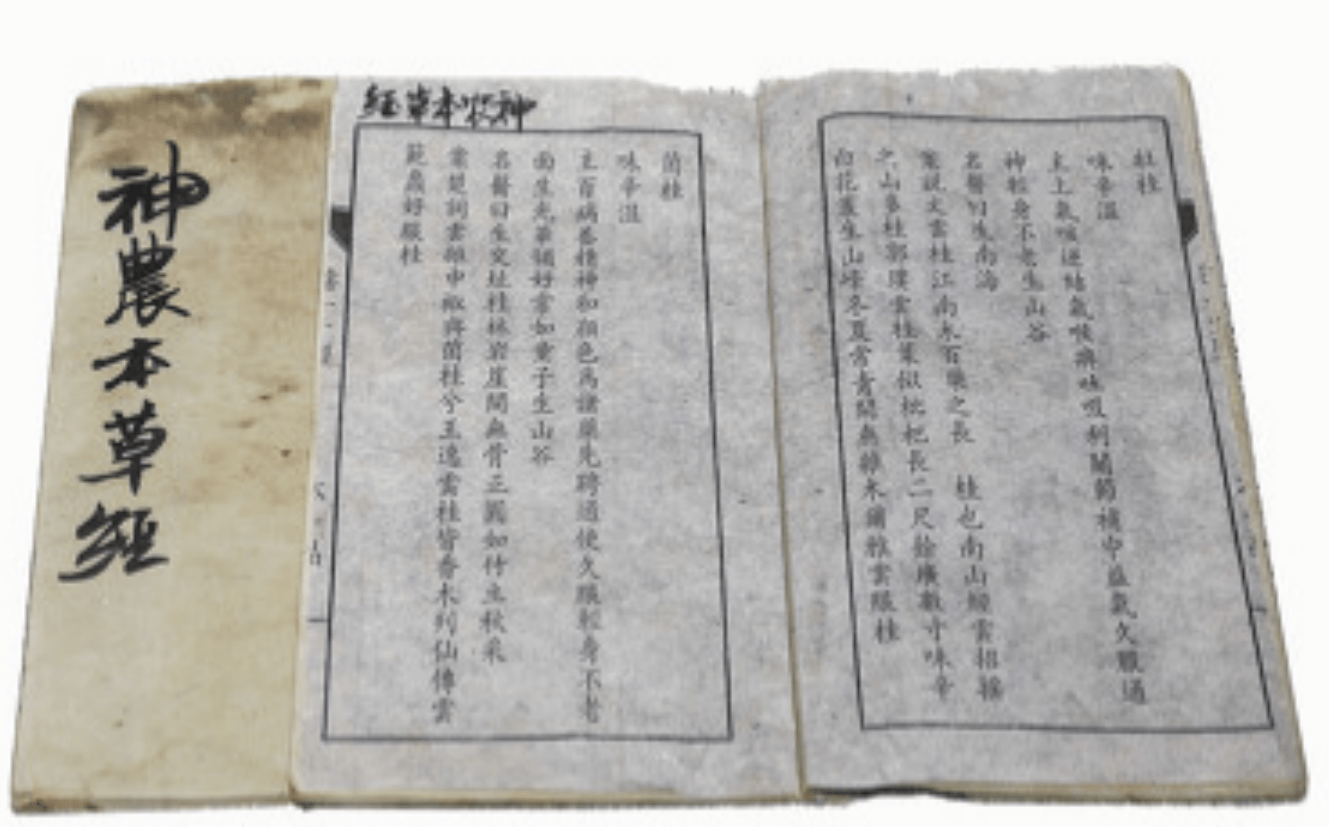 神農本草經
神农本草經
牡桂
味辛溫
主上氣咳逆結氣喉痹吐吸利關節補中益氣久服通
神輕身不老生山谷
名醫曰生南海
案說文雲桂江南木百藥之長 桂也南山經雲招搖
之山多桂郭璞雲桂葉似枇杷長二尺餘廣數寸味辛
白花叢生山峰冬夏常青間無雜木爾雅雲桂
菌桂
味辛溫
主百病養精神和顏色為諸藥先聘通使久服輕身不老
面生光華媚好常如童子生山谷
名醫曰生交址桂林岩崖間無骨正圓如竹立秋采
案楚詞雲雜申椒與菌桂兮王逸雲桂皆香木列仙傳雲
範蠡好服桂